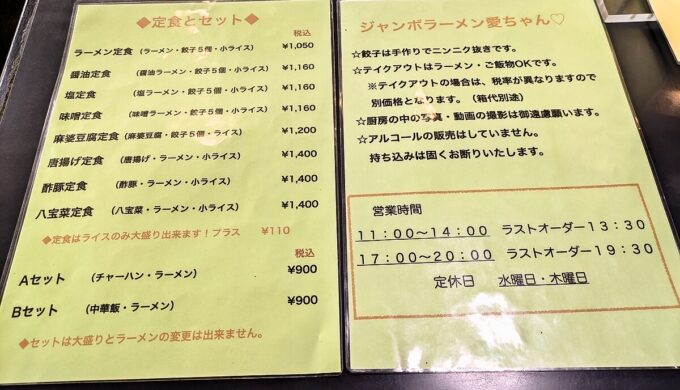 ◆定食とセット◆
税込
ラーメン定食 (ラーメン・餃子５個・小ライス) ¥1,050
醤油定食 (醤油ラーメン・餃子５個・小ライス) ¥1,160
塩定食 (塩ラーメン・餃子５個・小ライス) ¥1,160
味噌定食 (味噌ラーメン・餃子５個・小ライス) ¥1,160
麻婆豆腐定食(麻婆豆腐・餃子５個・ライス) ¥1,200
唐揚げ定食 (唐揚げ・ラーメン・小ライス) ¥1,400
酢豚定食 (酢豚・ラーメン・小ライス) ¥1,400
八宝菜定食 (八宝菜・ラーメン・小ライス) ¥1,400
◇定食はライスのみ大盛り出来ます！プラス ¥110
税込
Aセット (チャーハン・ラーメン) ¥900
Bセット (中華飯・ラーメン) ¥900
◆セットは大盛りとラーメンの変更は出来ません。
ジャンボラーメン愛ちゃん♡
☆餃子は手作りでニンニク抜きです。
☆テイクアウトはラーメン・ご飯物OKです。
※テイクアウトの場合は、税率が異なりますので
別価格となります。（箱代別途）
☆厨房の中の写真・動画の撮影は御遠慮願います。
☆アルコールの販売はしていません。
持ち込みは固くお断りいたします。
営業時間
１１：００～１４：００ ラストオーダー１３：３０
１７：００～２０：００ ラストオーダー１９：３０
定休日 水曜日・木曜日